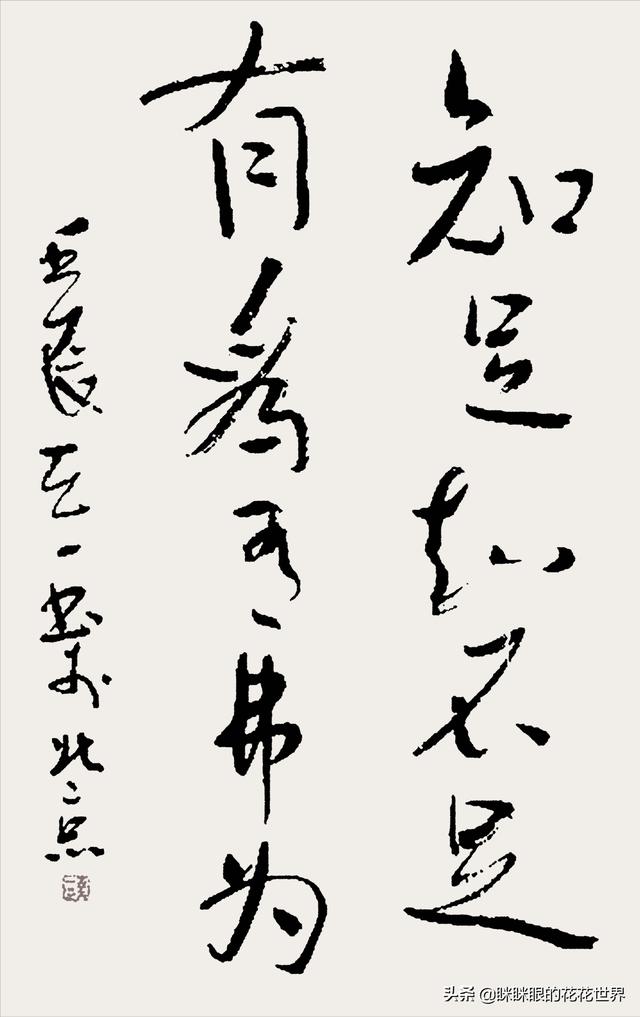 知足知不足
有為有弗为
壬辰一書於北京
头条 @眯眯眼的花花世界